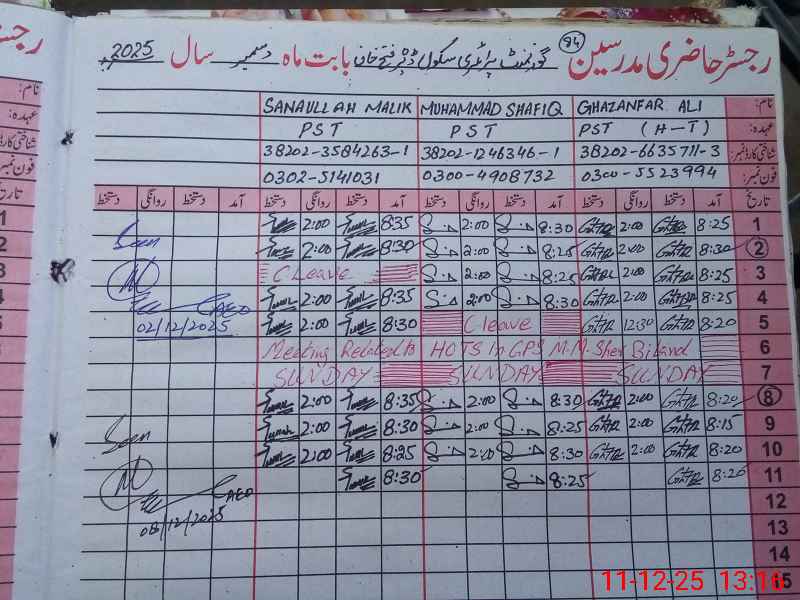 رجسٹر حاضری مدرسین (84) گورنمنٹ پرائمری سکول ڈھیر فتح خان بابت ماہ دسمبر سال 2025
نام: GHAZANFAR ALI MUHAMMAD SHAFIQ SANAULLAH MALIK
عہدہ: PST (H-T) PST PST
شناختی کارڈ نمبر: 38202-6635711-3 38202-1246346-1 38202-3584263-1
فون نمبر: 0300-5523994 0300-4908732 0302-5141031
تاریخ آمد دستخط روانگی دستخط آمد دستخط روانگی دستخط آمد دستخط روانگی دستخط آمد دستخط روانگی دستخط
1 8:25 2:00 8:30 2:00 8:35 2:00
2 8:30 2:00 8:25 2:00 8:30 2:00 Seen
3 8:25 2:00 8:25 2:00 C Leave
4 8:25 2:00 8:30 2:00 8:35 2:00 AEO
5 8:20 12:30 C leave 8:30 2:00 02/12/2025
6 Meeting Related to HOTS in GPS M.M. Sher Biland
7 SUNDAY SUNDAY SUNDAY
8 8:20 2:00 8:30 2:00 8:35 2:00
9 8:15 2:00 8:25 2:00 8:30 2:00 Seen
10 8:20 2:00 8:30 2:00 8:25 2:00
11 8:20 8:25 8:30 AEO
12 08/12/2025
13
14
15
11-12-25 13:16